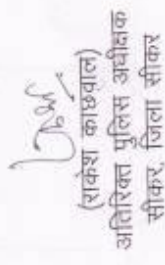 (राकेश काछवाल)
अतिरिक्त पुलिस अधीक्षक
सीकर, जिला सीकर